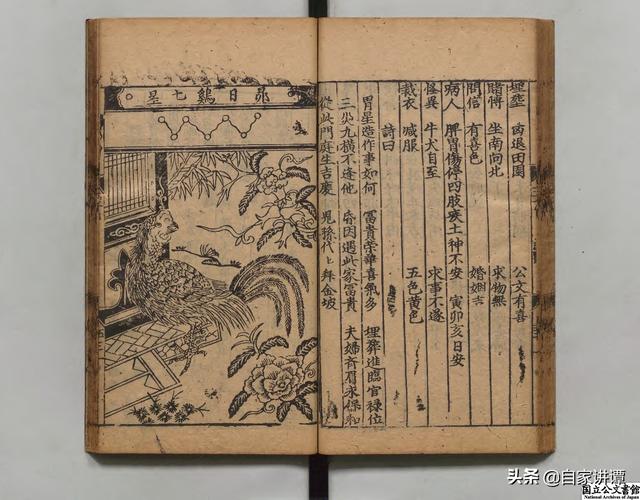 埋塟 退田園 公文有喜
賭博 坐南向北 求物無
問信 有喜色 婚姻吉
病人 脾胃傷停四肢疾土神不安 寅卯亥日安
怪異 牛犬自至 求事不遂
裁衣 喊服 五色黄色
詩曰
胃星造作事如何 冨貴榮華喜氣多 埋葬進臨官祿位
三災九横不逢他 昏因遇此家冨貴 夫婦齊眉永保和
從此門庭生吉慶 児孫代々拜金坡
昴日鷄七星
头条 @自家讲谭
国立公文書館
National Archives of Japan